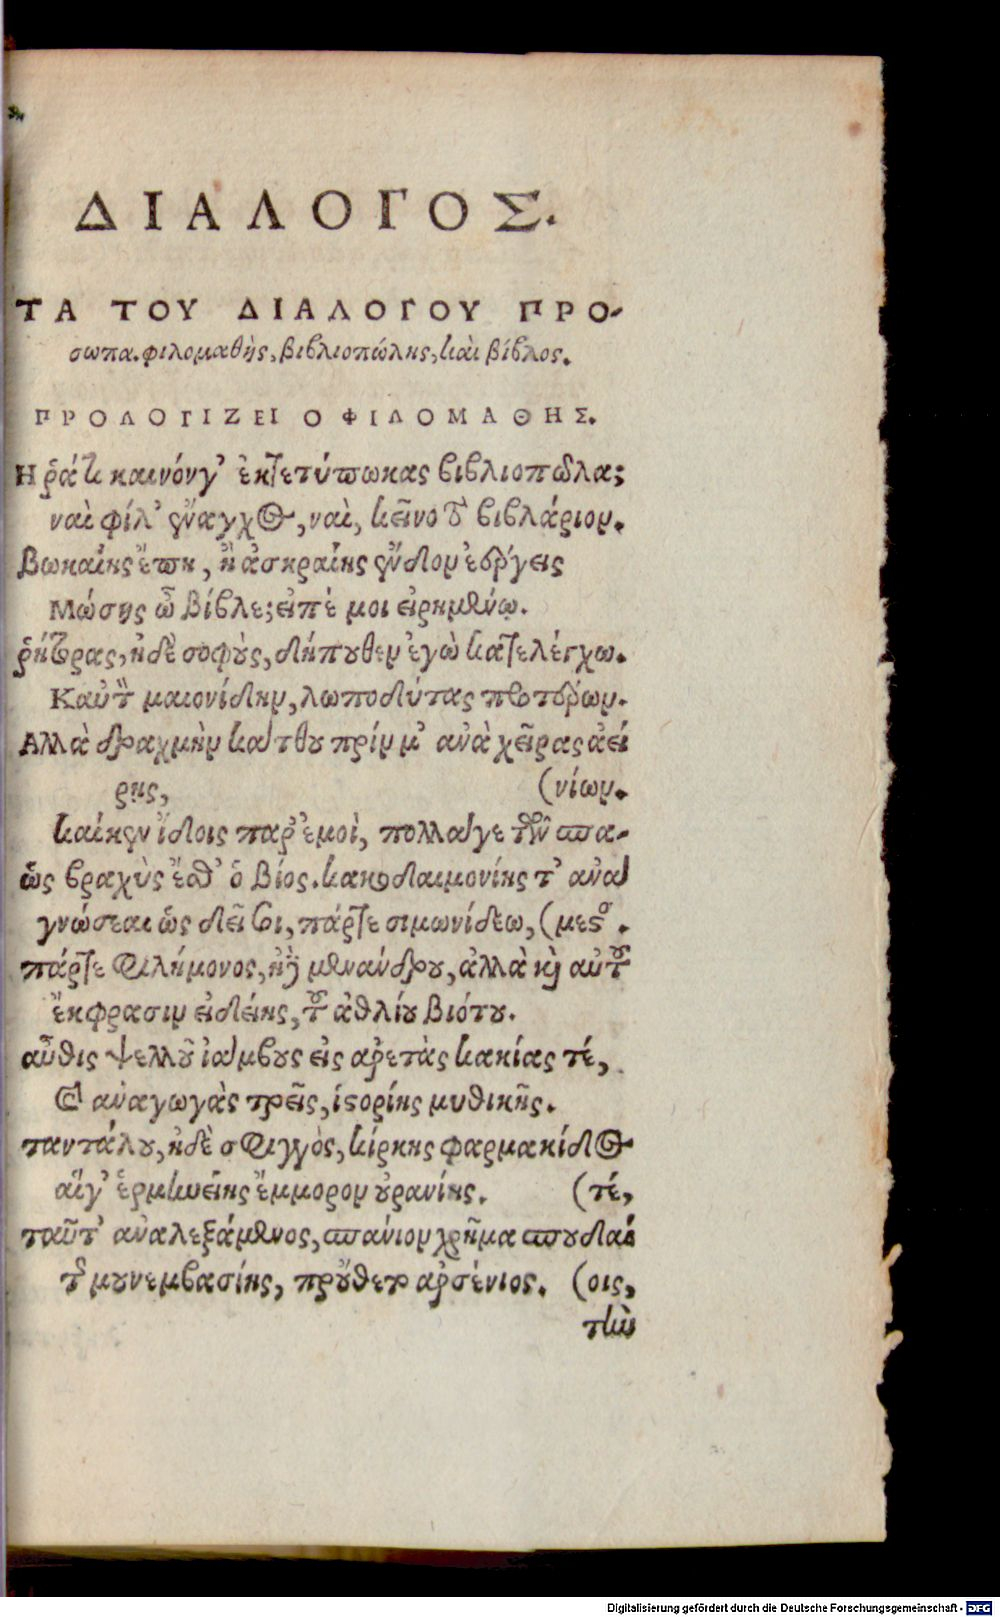 ΔΙΑΛΟΓΟΣ.
ΤΑ ΤΟΥ ΔΙΑΛΟΓΟΥ ΠΡΟ-
σωπα. φιλομαθὴς, βιβλιοπώλης, καὶ βίβλος.
ΠΡΟΛΟΓΙΖΕΙ Ο ΦΙΛΟΜΑΘΗΣ.
Η ῥά τι καινόνγ' ἐκτετύπωκας βιβλιοπῶλα;
ναὶ φίλ' ἔναγχος, ναὶ, κεῖνο τὸ βιβλάριον.
ἔπη, ἢ ἀσκραίης ἔνδον ἐέργεις
Μώσης ὦ βίβλε; εἰπέ μοι εἰρημένῳ.
ῥήτορας, ἠδὲ σοφοὺς, δήπουθεν ἐγὼ κατελέγχω.
Καὐτὸν μαιονίδην, λωποδύτας προτέρων.
Αλλὰ δραχμὴν κατθου πρίν μ' ἀνὰ χεῖρας ἀεί
ρης, (νίων.
καί κεν ἴδοις παρ' ἐμοὶ, πολλάγε τῶν σπα-
ὡς βραχὺς ἔσθ' ὁ βίος. κακοδαιμονίης τ' ἀνα
γνώσεαι ὡς δεῖ σοι, πάρτε σιμωνίδεω, (μεστός.
πάρτε Φιλήμονος, ἠὲ μενάνδρου, ἀλλὰ καὶ αὐτοῦ
ἔκφρασιν εἰδείης, τοῦ ἀθλίου βιότου.
αὖθις ψελλοῦ ἰάμβους εἰς ἀρετὰς κακίας τέ,
ἀναγωγὰς τρεῖς, ἱστορίης μυθικῆς.
ταντάλου, ἠδὲ σφιγγὸς, κίρκης φαρμακίδος
αἵγ' ἑρμηνείης ἔμμορον οὐρανίης. (τέ,
ταῦτ' ἀναλεξάμενος, σπάνιον χρῆμα σπουδαί
τῆς μουνεμβασίης, πρόὔθετ' ἀρσένιος. (οις,
τὼ
Digitalisierung gefördert durch die Deutsche Forschungsgemeinschaft - DFG